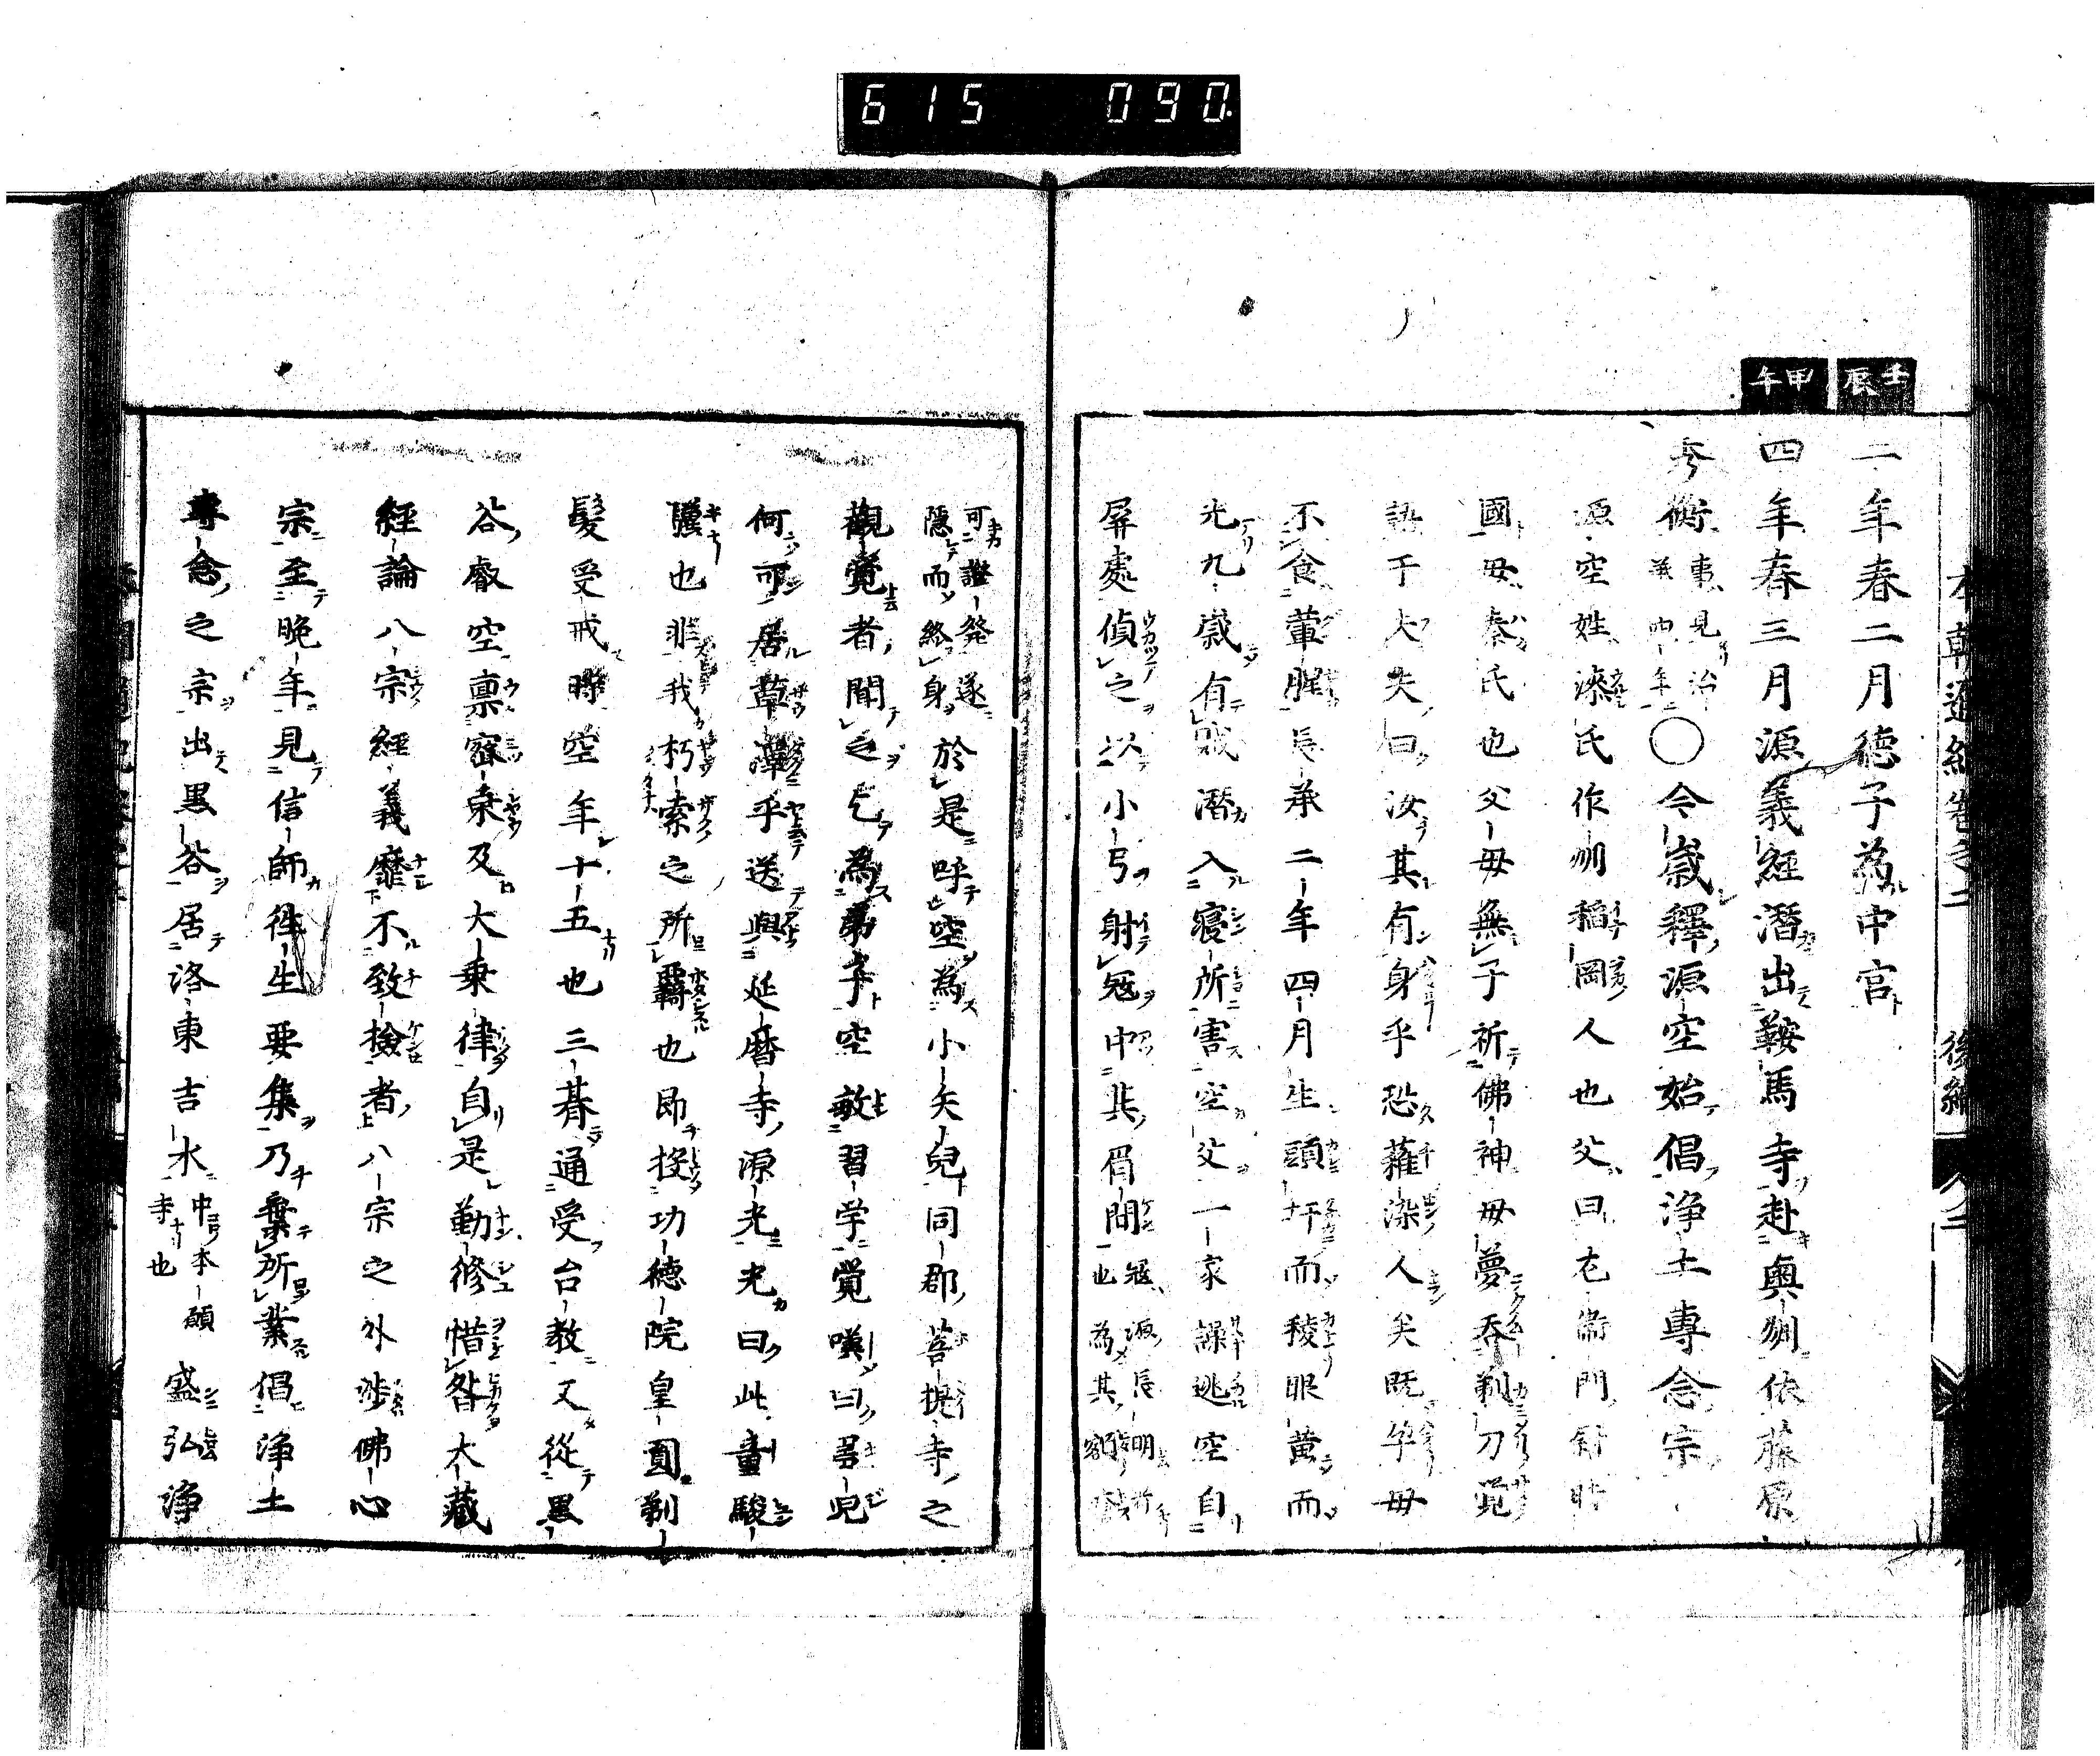 615 090.
壬辰
甲午
二年春二月德子為中宮
四年春三月源義經潛出鞍馬寺赴奧州依藤原
秀衡事見治承四年○今歲釋源空始倡淨土專念宗
源空姓漆氏作州稻岡人也父曰左衛門尉時
國母秦氏也父母無子祈佛神母夢吞剃刀覺
語于大夫曰汝其有身乎恐薙染人矣既孕母
不食葷腥長承二年四月生頭圩而稜眼黃而
光九歲有賊潛入寢所害空父一家譟逃空自
屏處偵之以小弓射冠中其眉間冠源長明也為其額
可證發遂隱而終身於是呼空為小矢兒同郡菩提寺之
觀覺者聞之乞為弟子空敏習学覺嘆曰君兒
何可居草澤乎送與延曆寺源光光曰此童駿
驥也非我朽索之所覊也即投功德院皇圓剃
髮受戒時空年十五也三朞通受台教又從黑
谷叡空稟密乗及大乗律自是勤修惜晷大藏
經論八宗經義靡不致檢者八宗之外涉佛心
宗至晚年見信師往生要集乃棄所業倡淨土
專念之宗出黑谷居洛東吉水中本願寺也盛弘淨